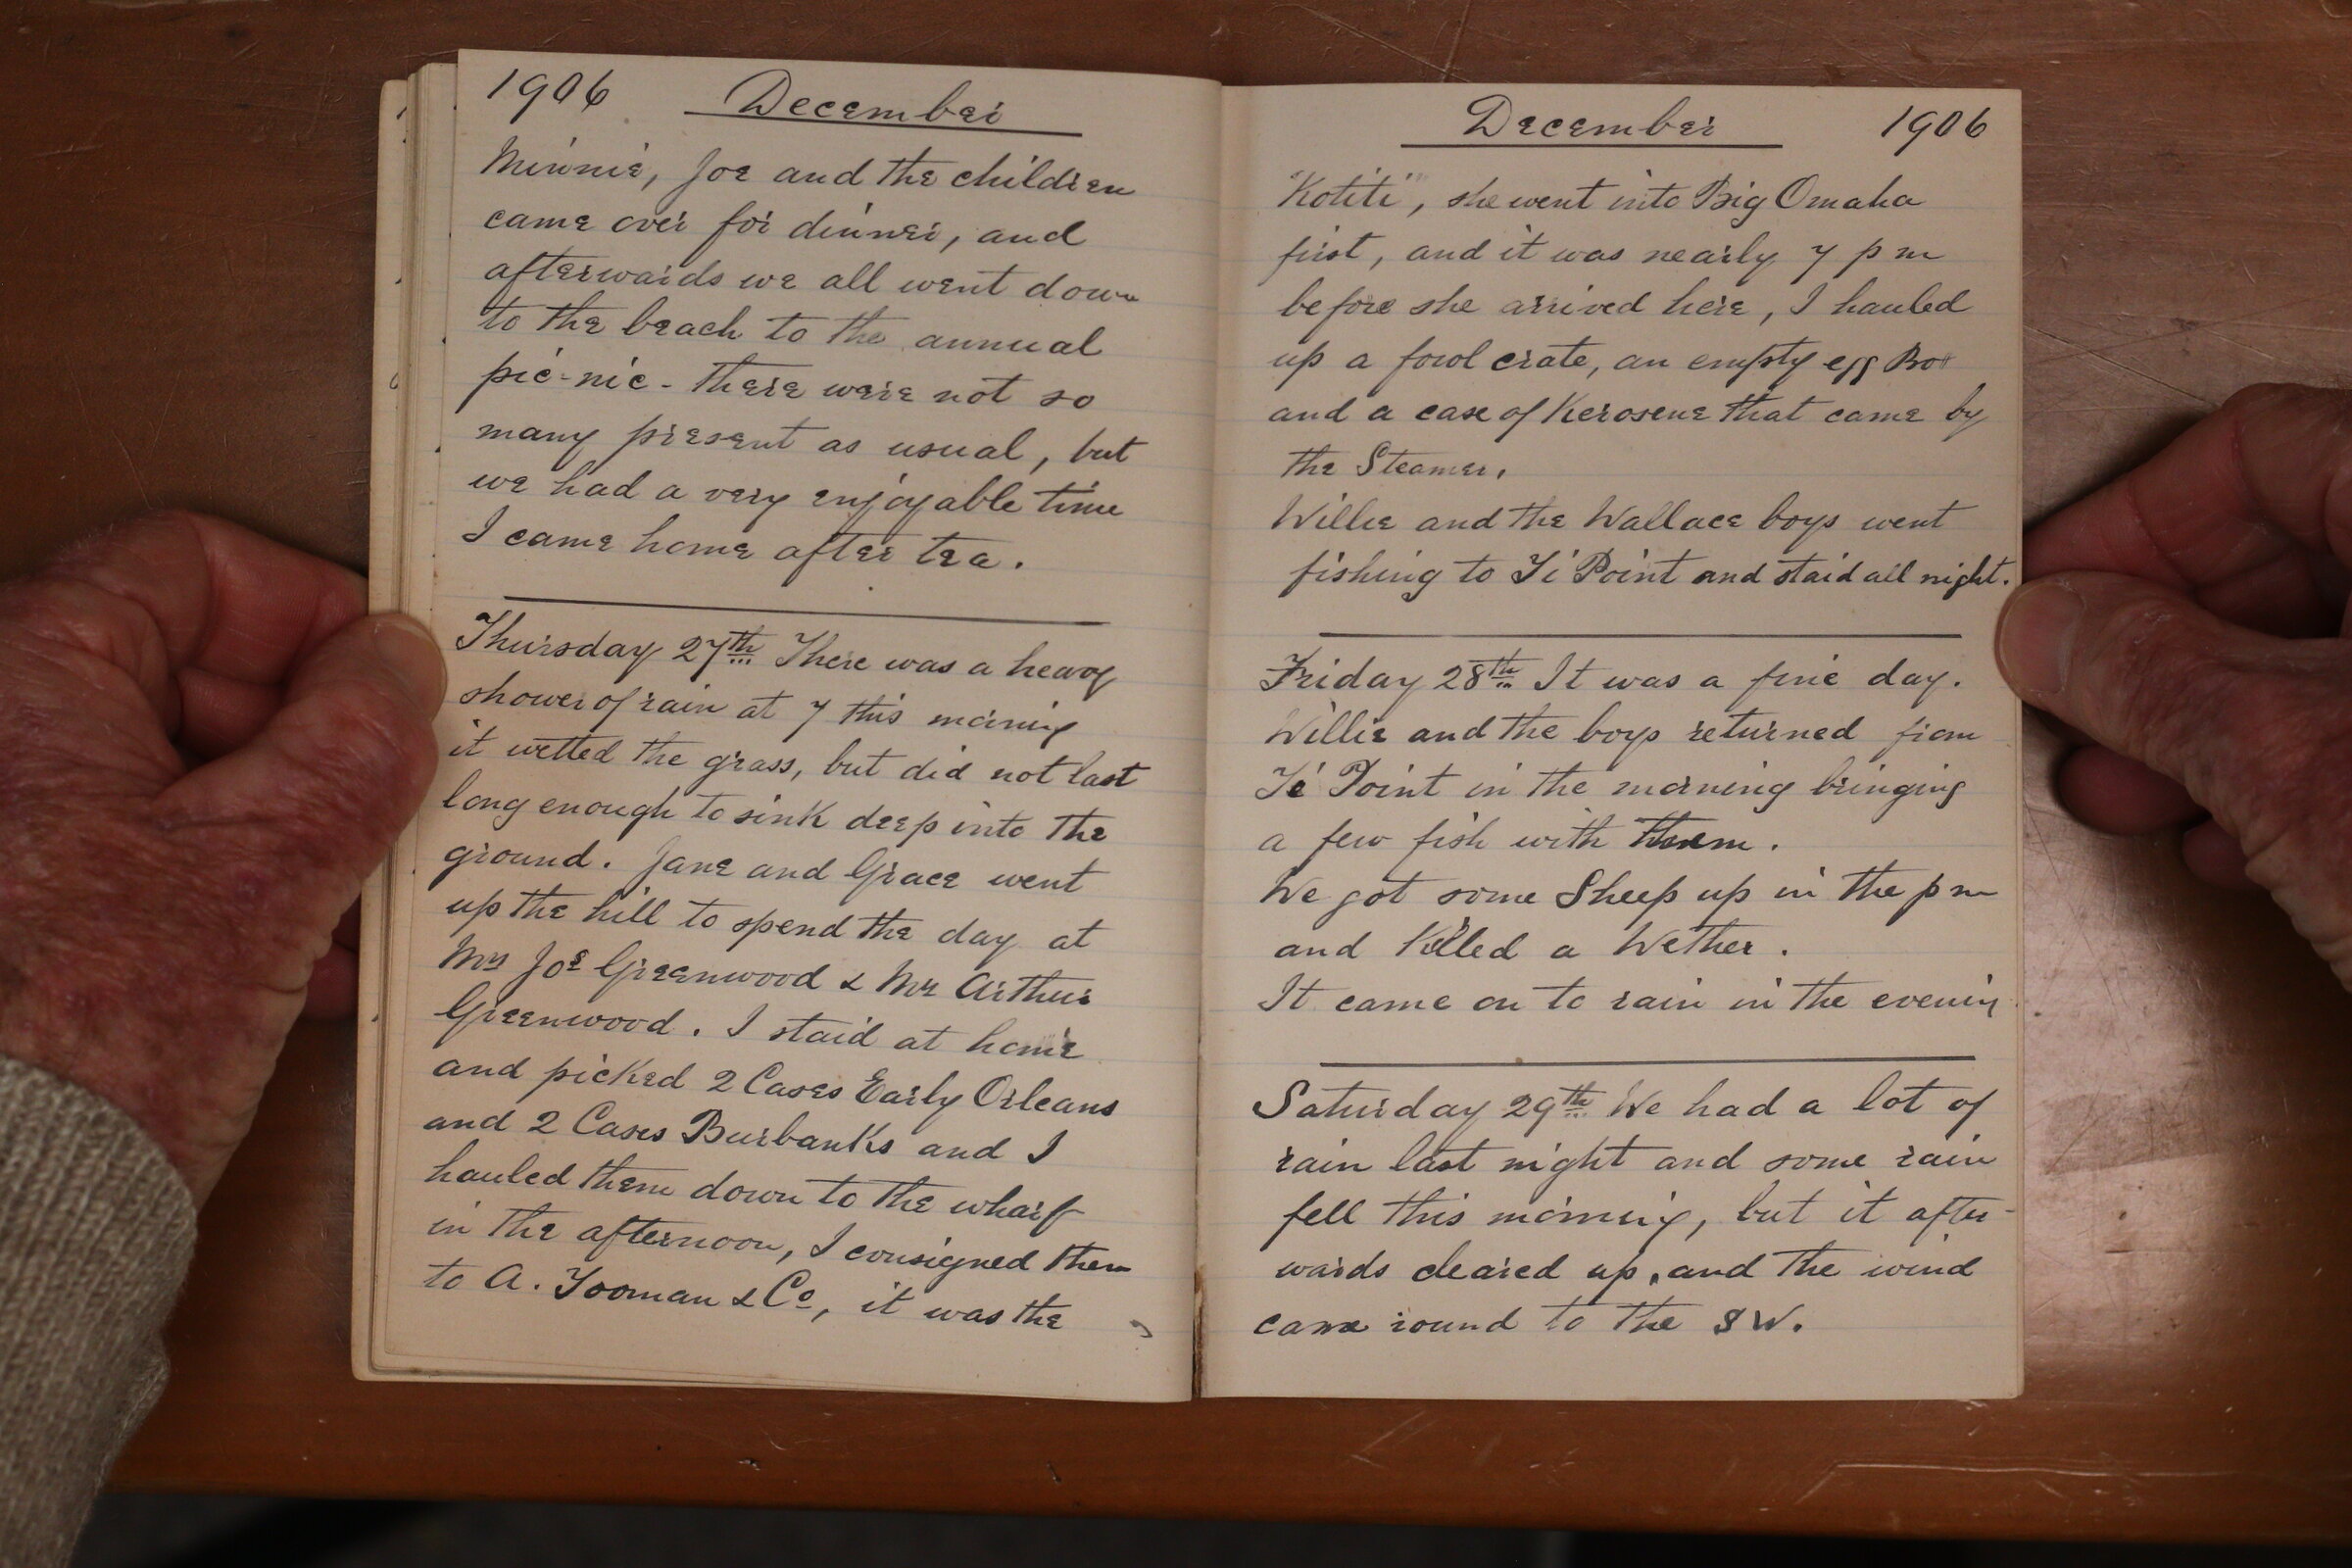 1906 December
Minnie, Joe and the children
came over for dinner, and
afterwards we all went down
to the beach to the annual
pic-nic - there were not so
many present as usual, but
we had a very enjoyable time
I came home after tea.
Thursday 27th There was a heavy
shower of rain at 7 this morning
it wetted the grass, but did not last
long enough to sink deep into the
ground. Jane and Grace went
up the hill to spend the day at
Mrs Joe Greenwood & Mr Arthur
Greenwood. I staid at home
and picked 2 Cases Early Orleans
and 2 Cases Burbanks and I
hauled them down to the wharf
in the afternoon, I consigned them
to A. Yooman & Co, it was the
December 1906
"Kotiti", she went into Big Omaha
first, and it was nearly 7 p m
before she arrived here, I hauled
up a fowl crate, an empty egg Box
and a case of Kerosene that came by
the Steamer.
Willie and the Wallace boys went
fishing to Ti Point and staid all night.
Friday 28th It was a fine day.
Willie and the boys returned from
Ti Point in the morning bringing
a few fish with them.
We got some Sheep up in the p m
and Killed a Wether.
It came on to rain in the evening
Saturday 29th We had a lot of
rain last night and some rain
fell this morning, but it after-
wards cleared up, and the wind
came round to the S W.